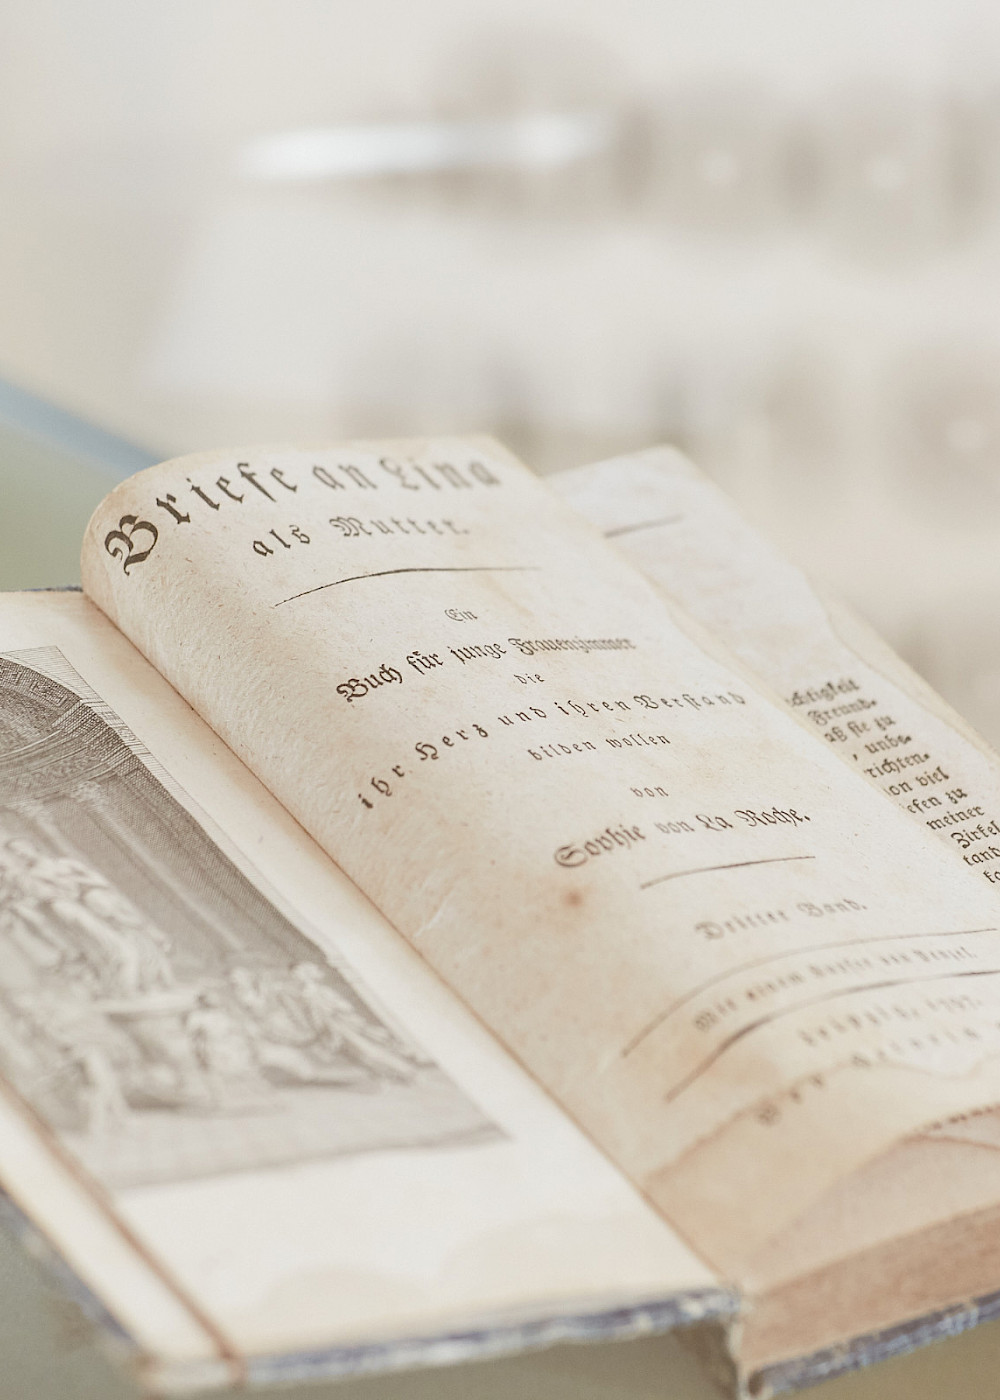 Briefe an Lina
als Mutter.
Ein
Buch für junge Frauenzimmer
die
ihr Herz und ihren Verstand
bilden wollen
von
Sophie von La Roche.
Dritter Band.
Mit einem Kupfer von Penzel.
Leipzig, 1797.
Bey Heinrich
ichtigkeit
Freund-
aß sie zu
, unbe-
richten-
on viel
iefen zu
meiner
Zirkel
tand